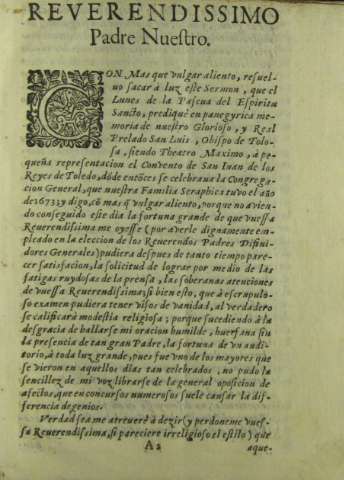 REVERENDISSIMO
Padre Nuestro.
CON Mas que vulgar aliento, resuel-
uo sacar à luz este Sermon, que el
Lunes de la Pascua del Espiritu
Sancto, prediquè en panegyrica me-
moria de nuestro Glorioso, y Real
Prelado San Luis, Obispo de Tolo-
sa, siendo Theatro Maximo, à pe-
queña representacion el Convento de San Iuan de los
Reyes de Toledo, dõde entõces se celebraua la Congrega-
cion General, que nuestra Familia Seraphica tuvo el año
de 1673. y digo, cõ mas q vulgar aliento, porque no avien-
do conseguido este dia la fortuna grande de que vuessa
Reuerendissima me oyesse (por averle dignamente em-
pleado en la eleccion de los Reuerendos Padres Difini-
dores Generales) pudiera despues de tanto tiempo pare-
cer satisfacion, la solicitud de lograr por medio de las
fatigas ruydosas de la prensa, las soberanas atenciones
de vuessa Reuerendissima; si bien esto, que à escrupulo-
so examen pudiera tener visos de vanidad, al verdadero
se calificarà modestia religiosa; porque sucediendo à la
desgracia de hallarse mi oracion humilde, huerfana sin
la presencia de tan gran Padre, la fortuna de vn audi-
torio, à toda luz grande, pues fue vno de los mayores que
se vieron en aquellos dias tan celebrados, no pudo la
sencillez de mi voz librarse de la general oposicion de
afectos, que en concursos numerosos suele causar la di-
ferencia de genios.
Verdad sea me atreuerè à dezir (y perdoneme vues-
sa Reuerendissima, si pareciere irreligioso el estilo) que
A2
aque-